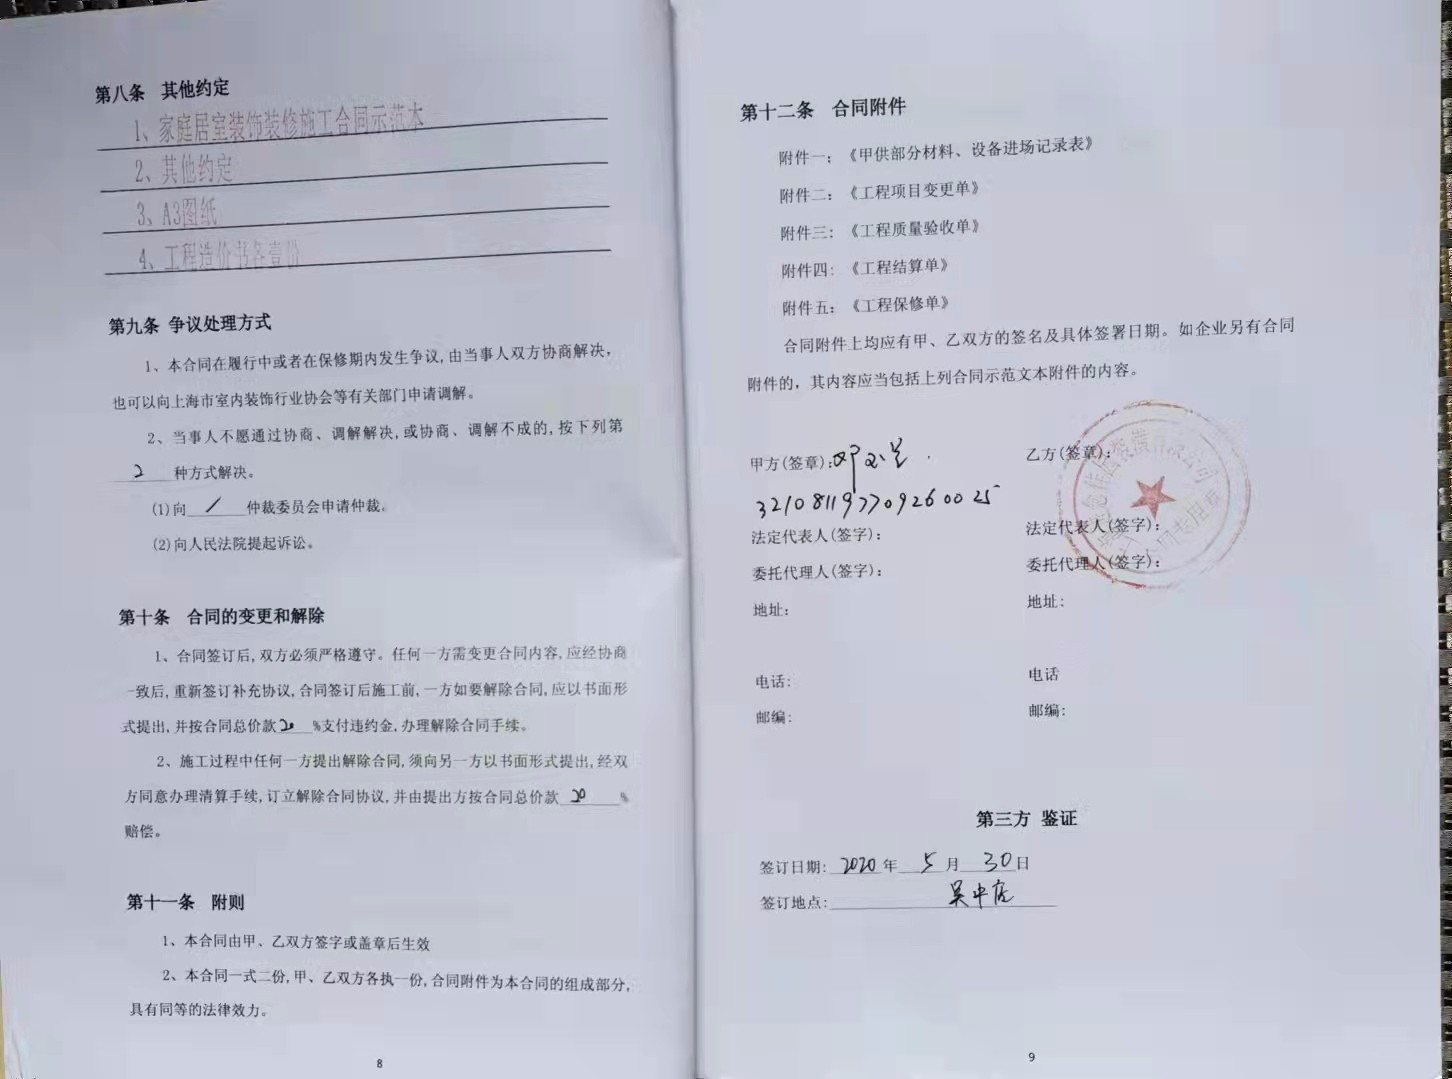 第八条 其他约定
1、家庭居室装饰装修施工合同示范本
2、其他约定
3、A3图纸
4、工程造价书各壹份
第九条 争议处理方式
1、本合同在履行中或者在保修期内发生争议,由当事人双方协商解决,
也可以向上海市室内装饰行业协会等有关部门申请调解。
2、当事人不愿通过协商、调解解决,或协商、调解不成的,按下列第
2 种方式解决。
(1)向 / 仲裁委员会申请仲裁。
(2)向人民法院提起诉讼。
第十条 合同的变更和解除
1、合同签订后,双方必须严格遵守。任何一方需变更合同内容,应经协商
一致后,重新签订补充协议,合同签订后施工前,一方如要解除合同,应以书面形
式提出,并按合同总价款20%支付违约金,办理解除合同手续。
2、施工过程中任何一方提出解除合同,须向另一方以书面形式提出,经双
方同意办理清算手续,订立解除合同协议,并由提出方按合同总价款 20 %
赔偿。
第十一条 附则
1、本合同由甲、乙双方签字或盖章后生效
2、本合同一式二份,甲、乙双方各执一份,合同附件为本合同的组成部分,
具有同等的法律效力。
8
第十二条 合同附件
附件一:《甲供部分材料、设备进场记录表》
附件二:《工程项目变更单》
附件三:《工程质量验收单》
附件四:《工程结算单》
附件五:《工程保修单》
合同附件上均应有甲、乙双方的签名及具体签署日期。如企业另有合同
附件的,其内容应当包括上列合同示范文本附件的内容。
甲方(签章): 乙方(签章):
321081197709260025
法定代表人(签字): 法定代表人(签字):
委托代理人(签字): 委托代理人(签字):
地址: 地址:
电话: 电话
邮编: 邮编:
第三方 鉴证
签订日期: 2020 年 5 月 30 日
签订地点: 吴中店
9